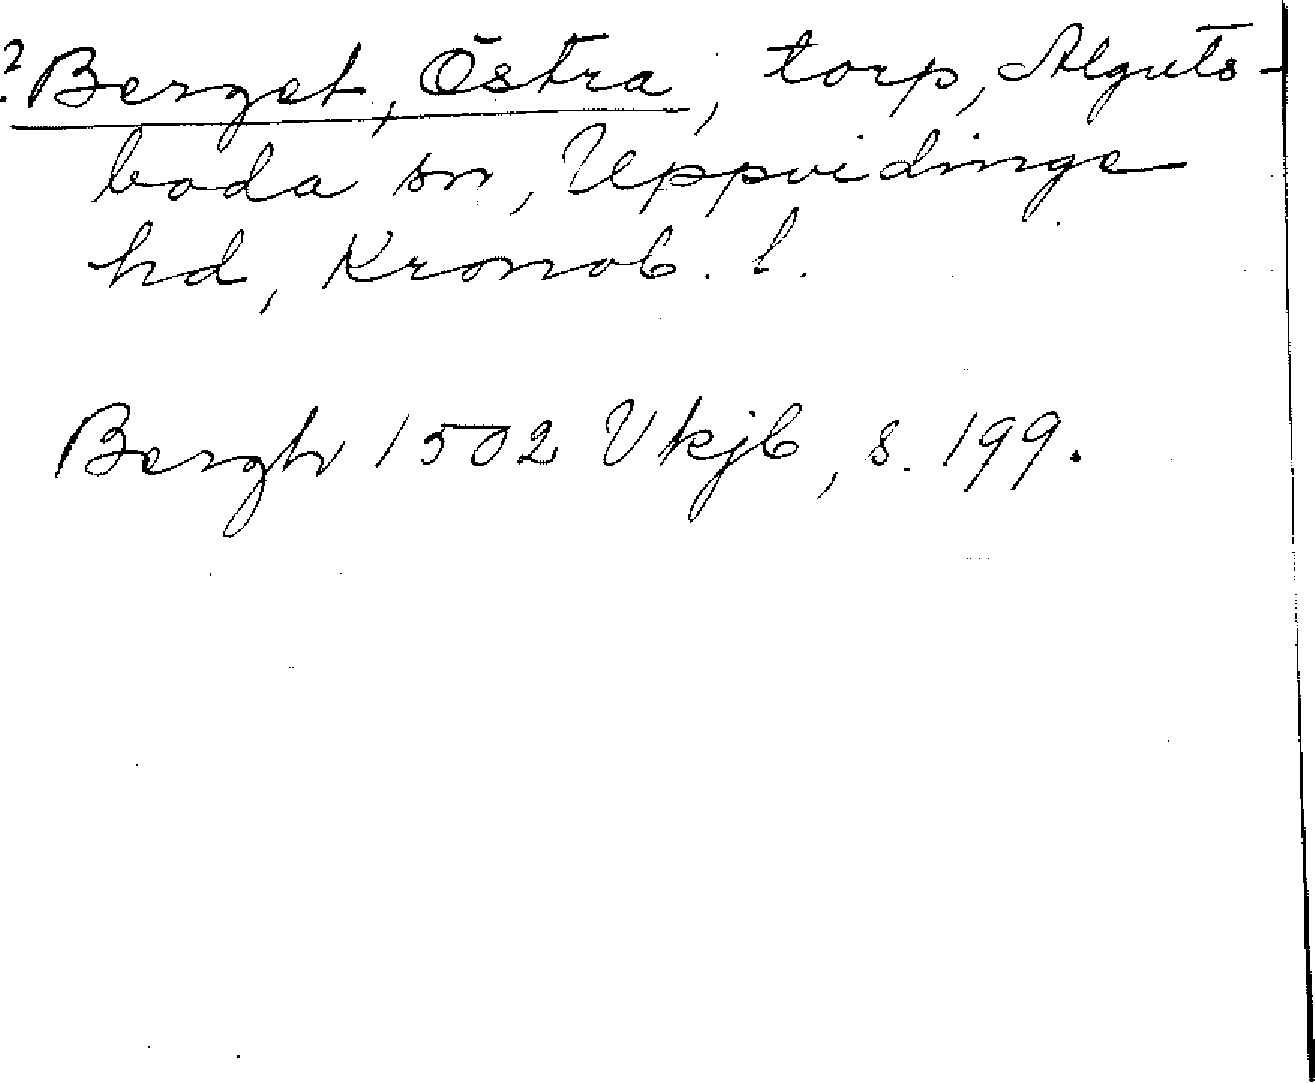 ? Berget, Östra, torp, Alguts-
boda sn, Uppvidinge
hd, Kronob. l.
Bergh 1502 Vkjb, s. 199.